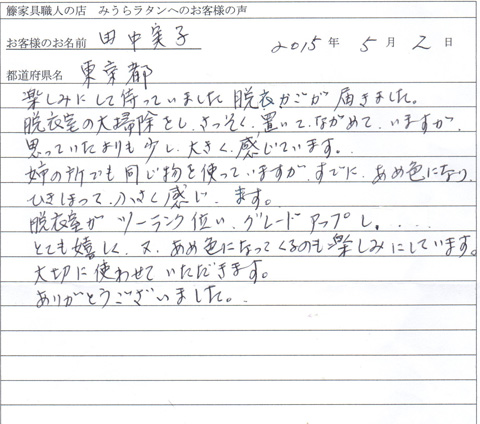 籐家具職人の店 みうらラタンへのお客様の声
お客様のお名前 田中実子 2015年 5月 2日
都道府県名 東京都
楽しみにして待っていました脱衣かごが届きました。
脱衣室の大掃除をし、さっそく、置いて、ながめて、いますが、
思っていたよりも少し、大きく、感じています。
姉の所でも同じ物を使っていますが、すでに、あめ色になり、
ひきしまって、小さく感じ、ます。
脱衣室が ツーランク位い、グレードアップし、...
とても嬉しく、又、あめ色になってくるのも楽しみにしています。
大切に使わせていただきます。
ありがとうございました。